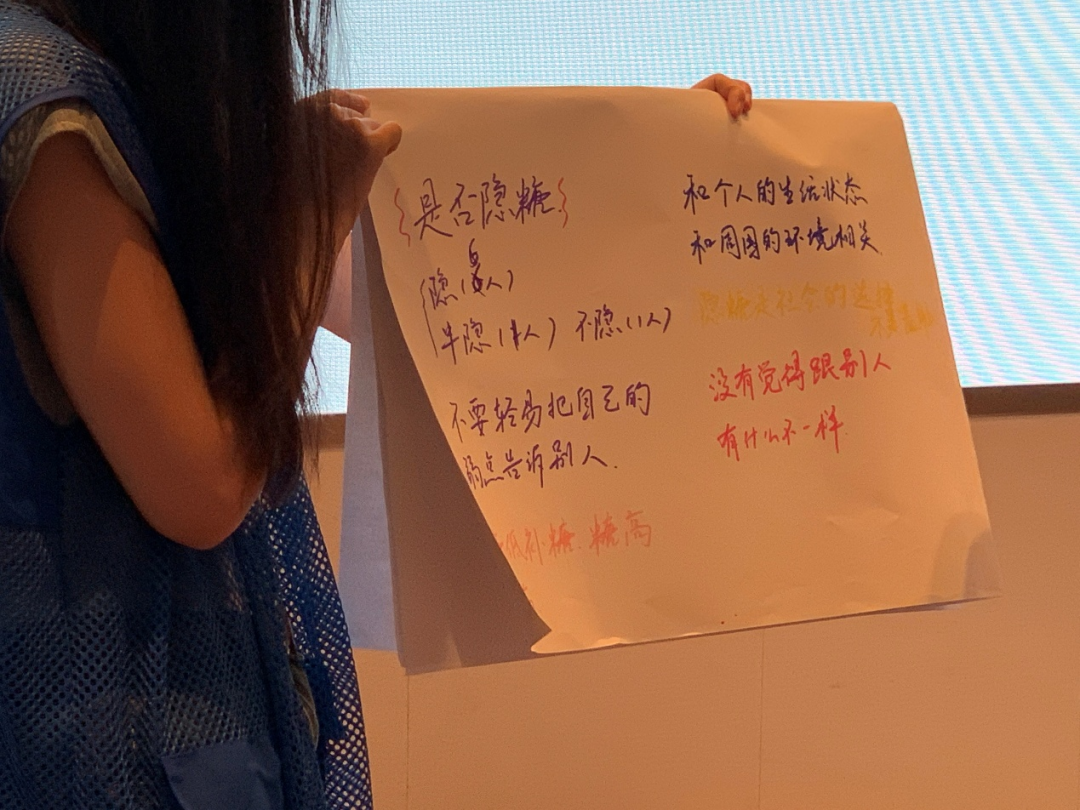 是否隐糖
隐(人)
半隐(人) 不隐(1人)
不要轻易把自己的
弱点告诉别人.
低补糖. 糖高
和个人的生活状态
和周围的环境相关
隐糖是社会的选择
没有觉得跟别人
有什么不一样.